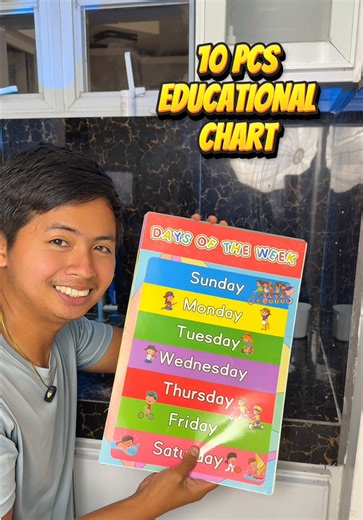 10 PCS
EDUCATIONAL
CHART
DAYS OF THE WEEK
Sunday
Monday
Tuesday
Wednesday
Thursday
Friday
Saturday